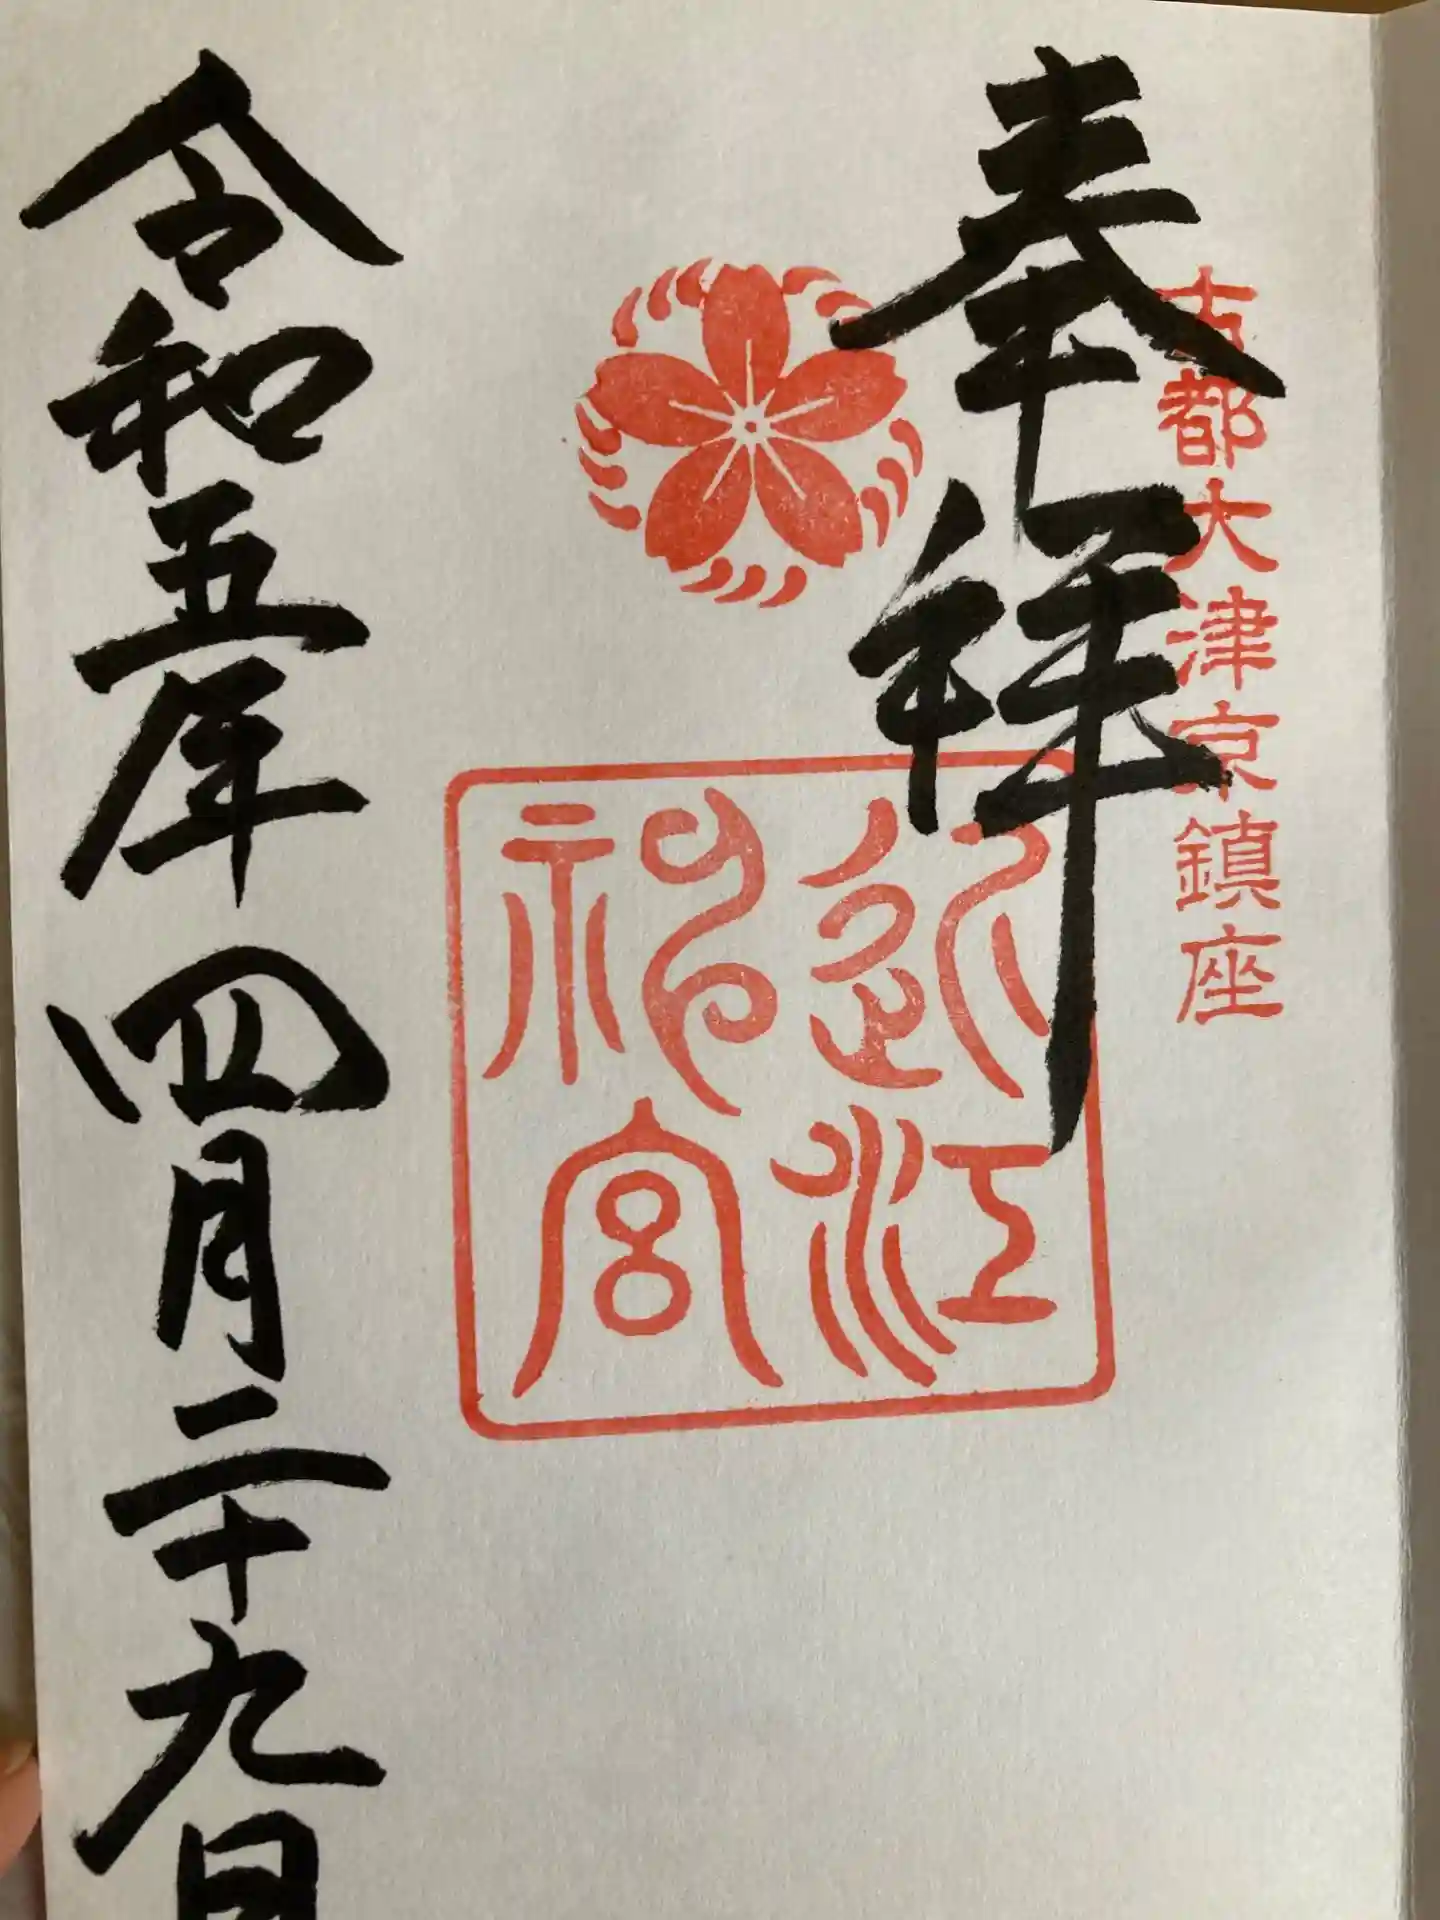 奉拝
古都大津京鎮座
近江
神宮
令和五年四月二十九日